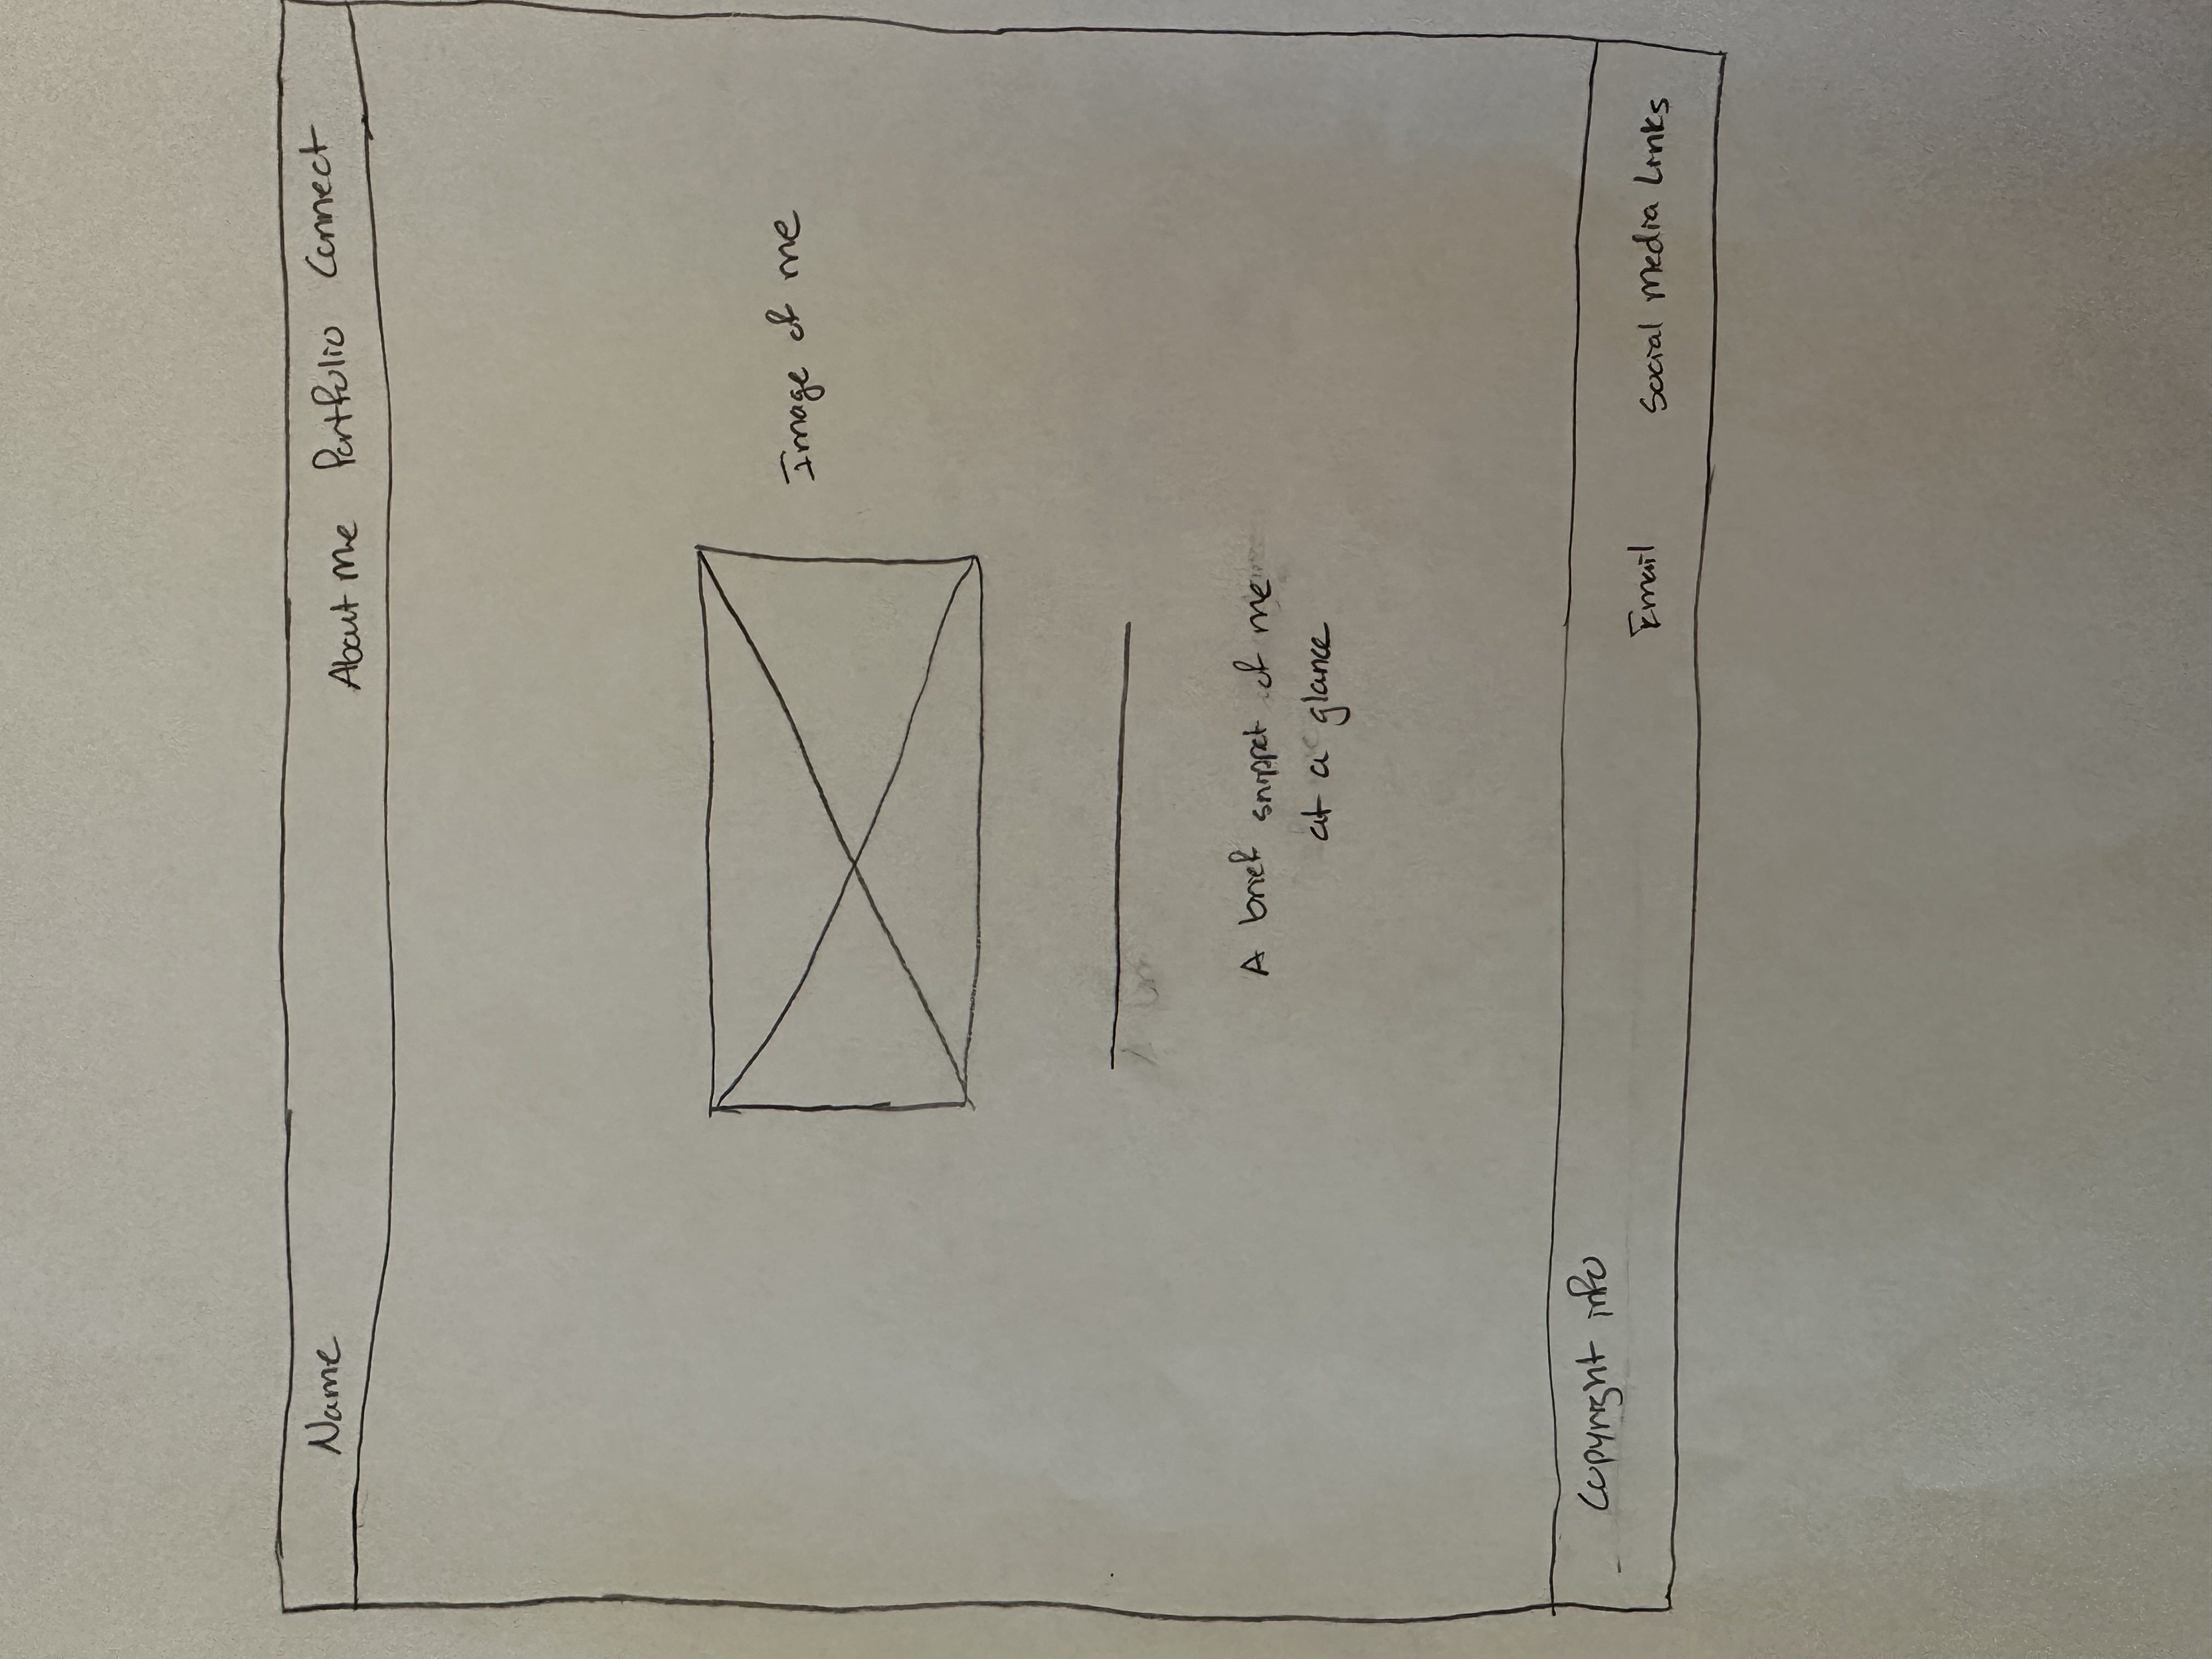 Name
About Me Portfolio Connect
Image of me
A brief snippet of me
at a glance
Copyright info
Email Social Media Links